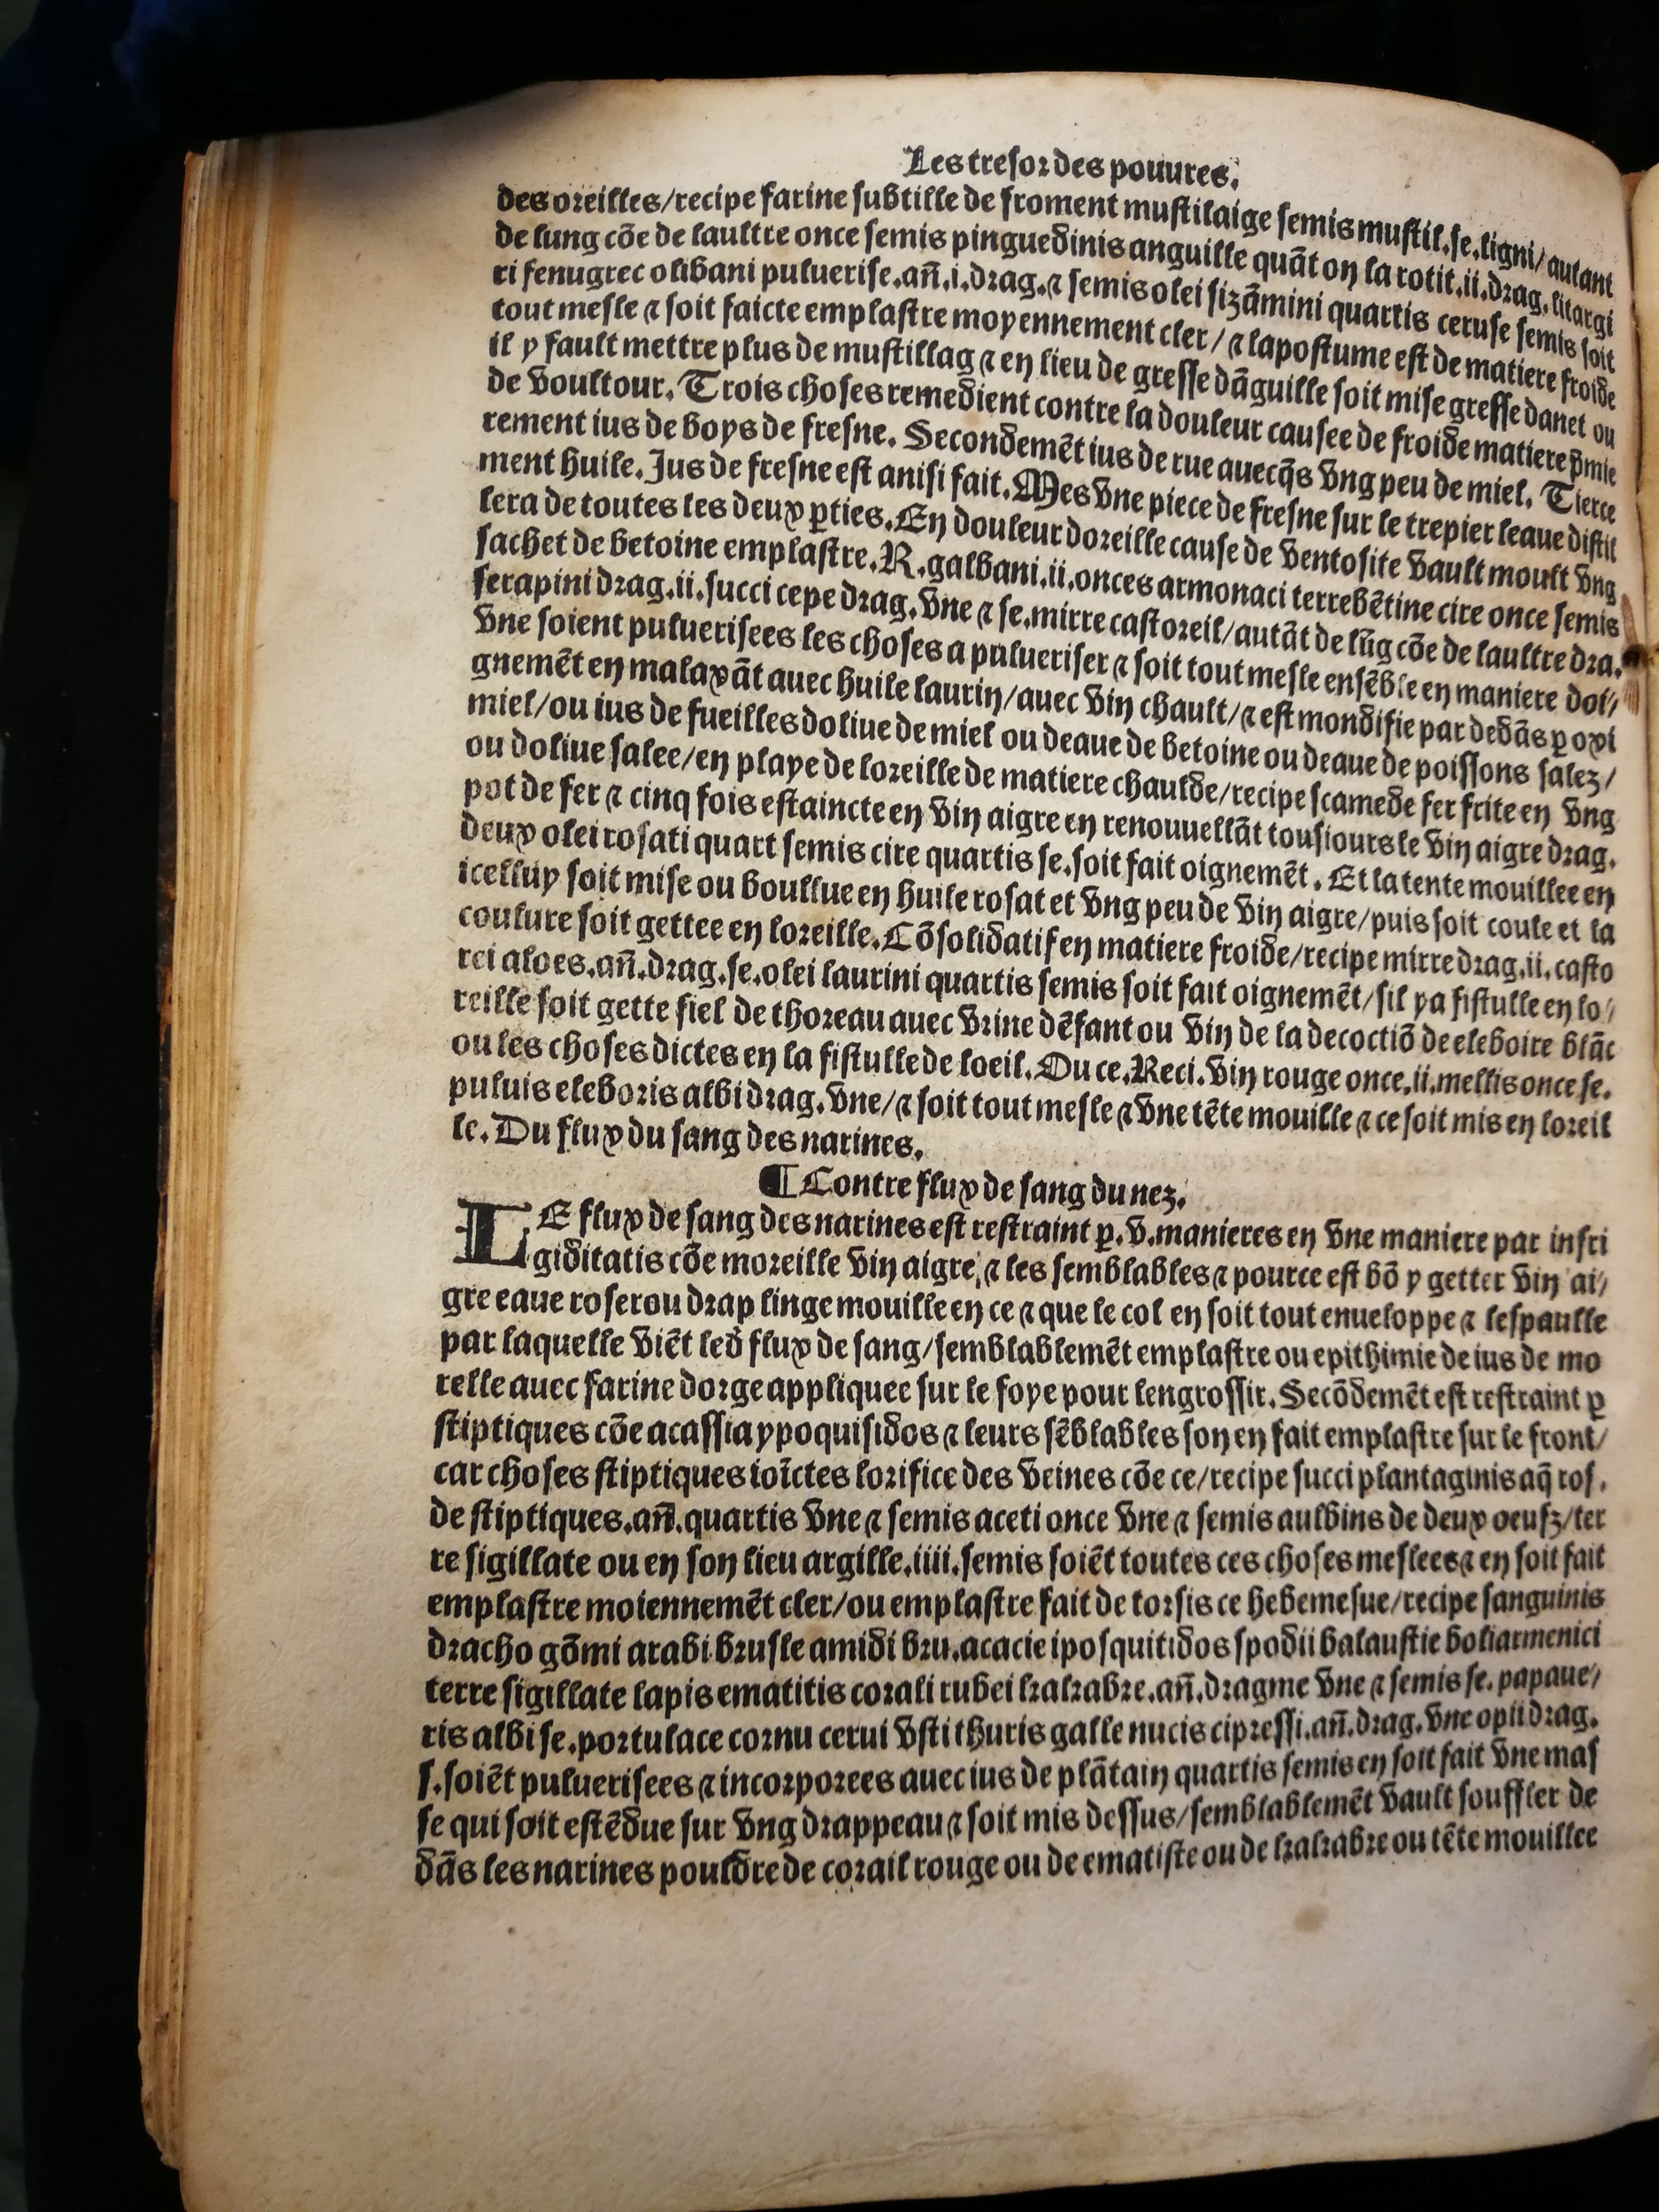 Les tresor des pouures.
des oreilles/recipe farine subtille de froment mustilaige semis mustil.se.ligni/autant
de lung cõe de laultre once semis pinguedinis anguille quãt on la rotit.ii.drag.litargi
ri fenugrec olibani puluerise.añ.i.drag.⁊ semis olei sizãmini quartis ceruse semis soit
tout mesle ⁊ soit faicte emplastre moyennement cler/⁊ lapostume est de matiere froide
il y fault mettre plus de mustillag ⁊ en lieu de gresse dãguille soit mise gresse danet ou
de voultour. Trois choses remedient contre la douleur causee de froide matiere p̃mie
rement ius de boys de fresne. Secondemẽt ius de rue auecq̃s vng peu de miel. Tierce
ment huile. Jus de fresne est anisi fait. Mes vne piece de fresne sur le trepier leaue distil
lera de toutes les deux ꝑties. En douleur doreille cause de ventosite vault moult vng
sachet de betoine emplastre. R. galbani.ii.onces armonaci terrebẽtine cire once semis
serapini drag.ii.succi cepe drag.vne ⁊ se.mirre castoreil/autãt de lũg cõe de laultre dra.
vne soient puluerisees les choses a pulueriser ⁊ soit tout mesle ensẽble en maniere doi/
gnemẽt en malaxãt auec huile laurin/auec vin chault/⁊ est mondifie par dedãs ꝑ oxi
miel/ou ius de fueilles doliue de miel ou deaue de betoine ou deaue de poissons salez/
ou doliue salee/en playe de loreille de matiere chaulde/recipe scamede fer frite en vng
pot de fer ⁊ cinq fois estaincte en vin aigre en renouuellãt tousiours le vin aigre drag.
deux olei rosati quart semis cire quartis se.soit fait oignemẽt. Et la tente mouillee en
icelluy soit mise ou boullue en huile rosat et vng peu de vin aigre/puis soit coule et la
coulure soit gettee en loreille. Cõsolidatif en matiere froide/recipe mirre drag.ii.casto
rei aloes.añ.drag.se.olei laurini quartis semis soit fait oignemẽt/sil ya fistulle en lo/
reille soit gette fiel de thoreau auec vrine dẽfant ou vin de la decoctiõ de eleboire blãc
ou les choses dictes en la fistulle de loeil. Ou ce. Reci. vin rouge once.ii.mellis once se.
puluis eleboris albi drag.vne/⁊ soit tout mesle ⁊ vne tẽte mouille ⁊ ce soit mis en loreil
le. Du flux du sang des narines.
¶ Contre flux de sang du nez.
LE flux de sang des narines est restraint ꝑ.v.manieres en vne maniere par infri
giditatis cõe moreille vin aigre,⁊ les semblables ⁊ pource est bõ y getter vin ai/
gre eaue roser ou drap linge mouille en ce ⁊ que le col en soit tout enueloppe ⁊ lespaulle
par laquelle viẽt led̃ flux de sang/semblablemẽt emplastre ou epithimie de ius de mo
relle auec farine dorge appliquee sur le foye pour lengrossir. Secõdemẽt est restraint ꝑ
stiptiques cõe acassia ypoquisidos ⁊ leurs sẽblables son en fait emplastre sur le front/
car choses stiptiques ioĩctes lorifice des veines cõe ce/recipe succi plantaginis aq̃ ros.
de stiptiques.añ.quartis vne ⁊ semis aceti once vne ⁊ semis aulbins de deux oeufz/ter
re sigillate ou en son lieu argille.iiii.semis soiẽt toutes ces choses meslees ⁊ en soit fait
emplastre moiennemẽt cler/ou emplastre fait de torsis ce hebemesue/recipe sanguinis
dracho gõmi arabi brusle amidi bru.acacie iposquitidos spodii balaustie boliarmenici
terre sigillate lapis ematitis corali rubei kakabre.añ.dragme vne ⁊ semis se.papaue/
ris albi se.portulace cornu cerui vsti thuris galle nucis cipressi.añ.drag.vne opii drag.
s.soiẽt puluerisees ⁊ incorporees auec ius de plãtain quartis semis en soit fait vne mas
se qui soit estẽdue sur vng drappeau ⁊ soit mis dessus/semblablemẽt vault souffler de
dãs les narines pouldre de corail rouge ou de ematiste ou de kakabre ou tẽte mouillee